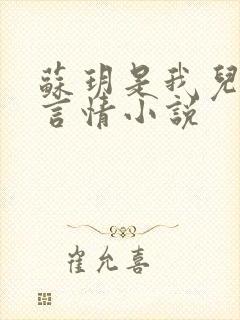 蘇玥是我兒
言情小説
崔允喜